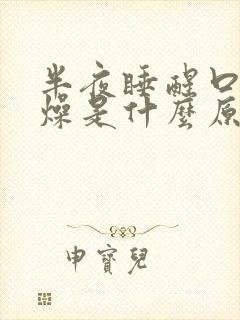 半夜睡醒口
燥是什麼原
申寶兒